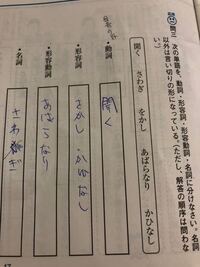 問三 次の単語を、動詞・形容詞・形容動詞・名詞に分けなさい。名詞
以外は言い切りの形になっている。(ただし、解答の順序は問わな
い。)
開く さわぎ をかし あばらなり かひなし
・動詞
開く
・形容詞
をかし・かひなし
・形容動詞
あばらなり
・名詞
さわぎ